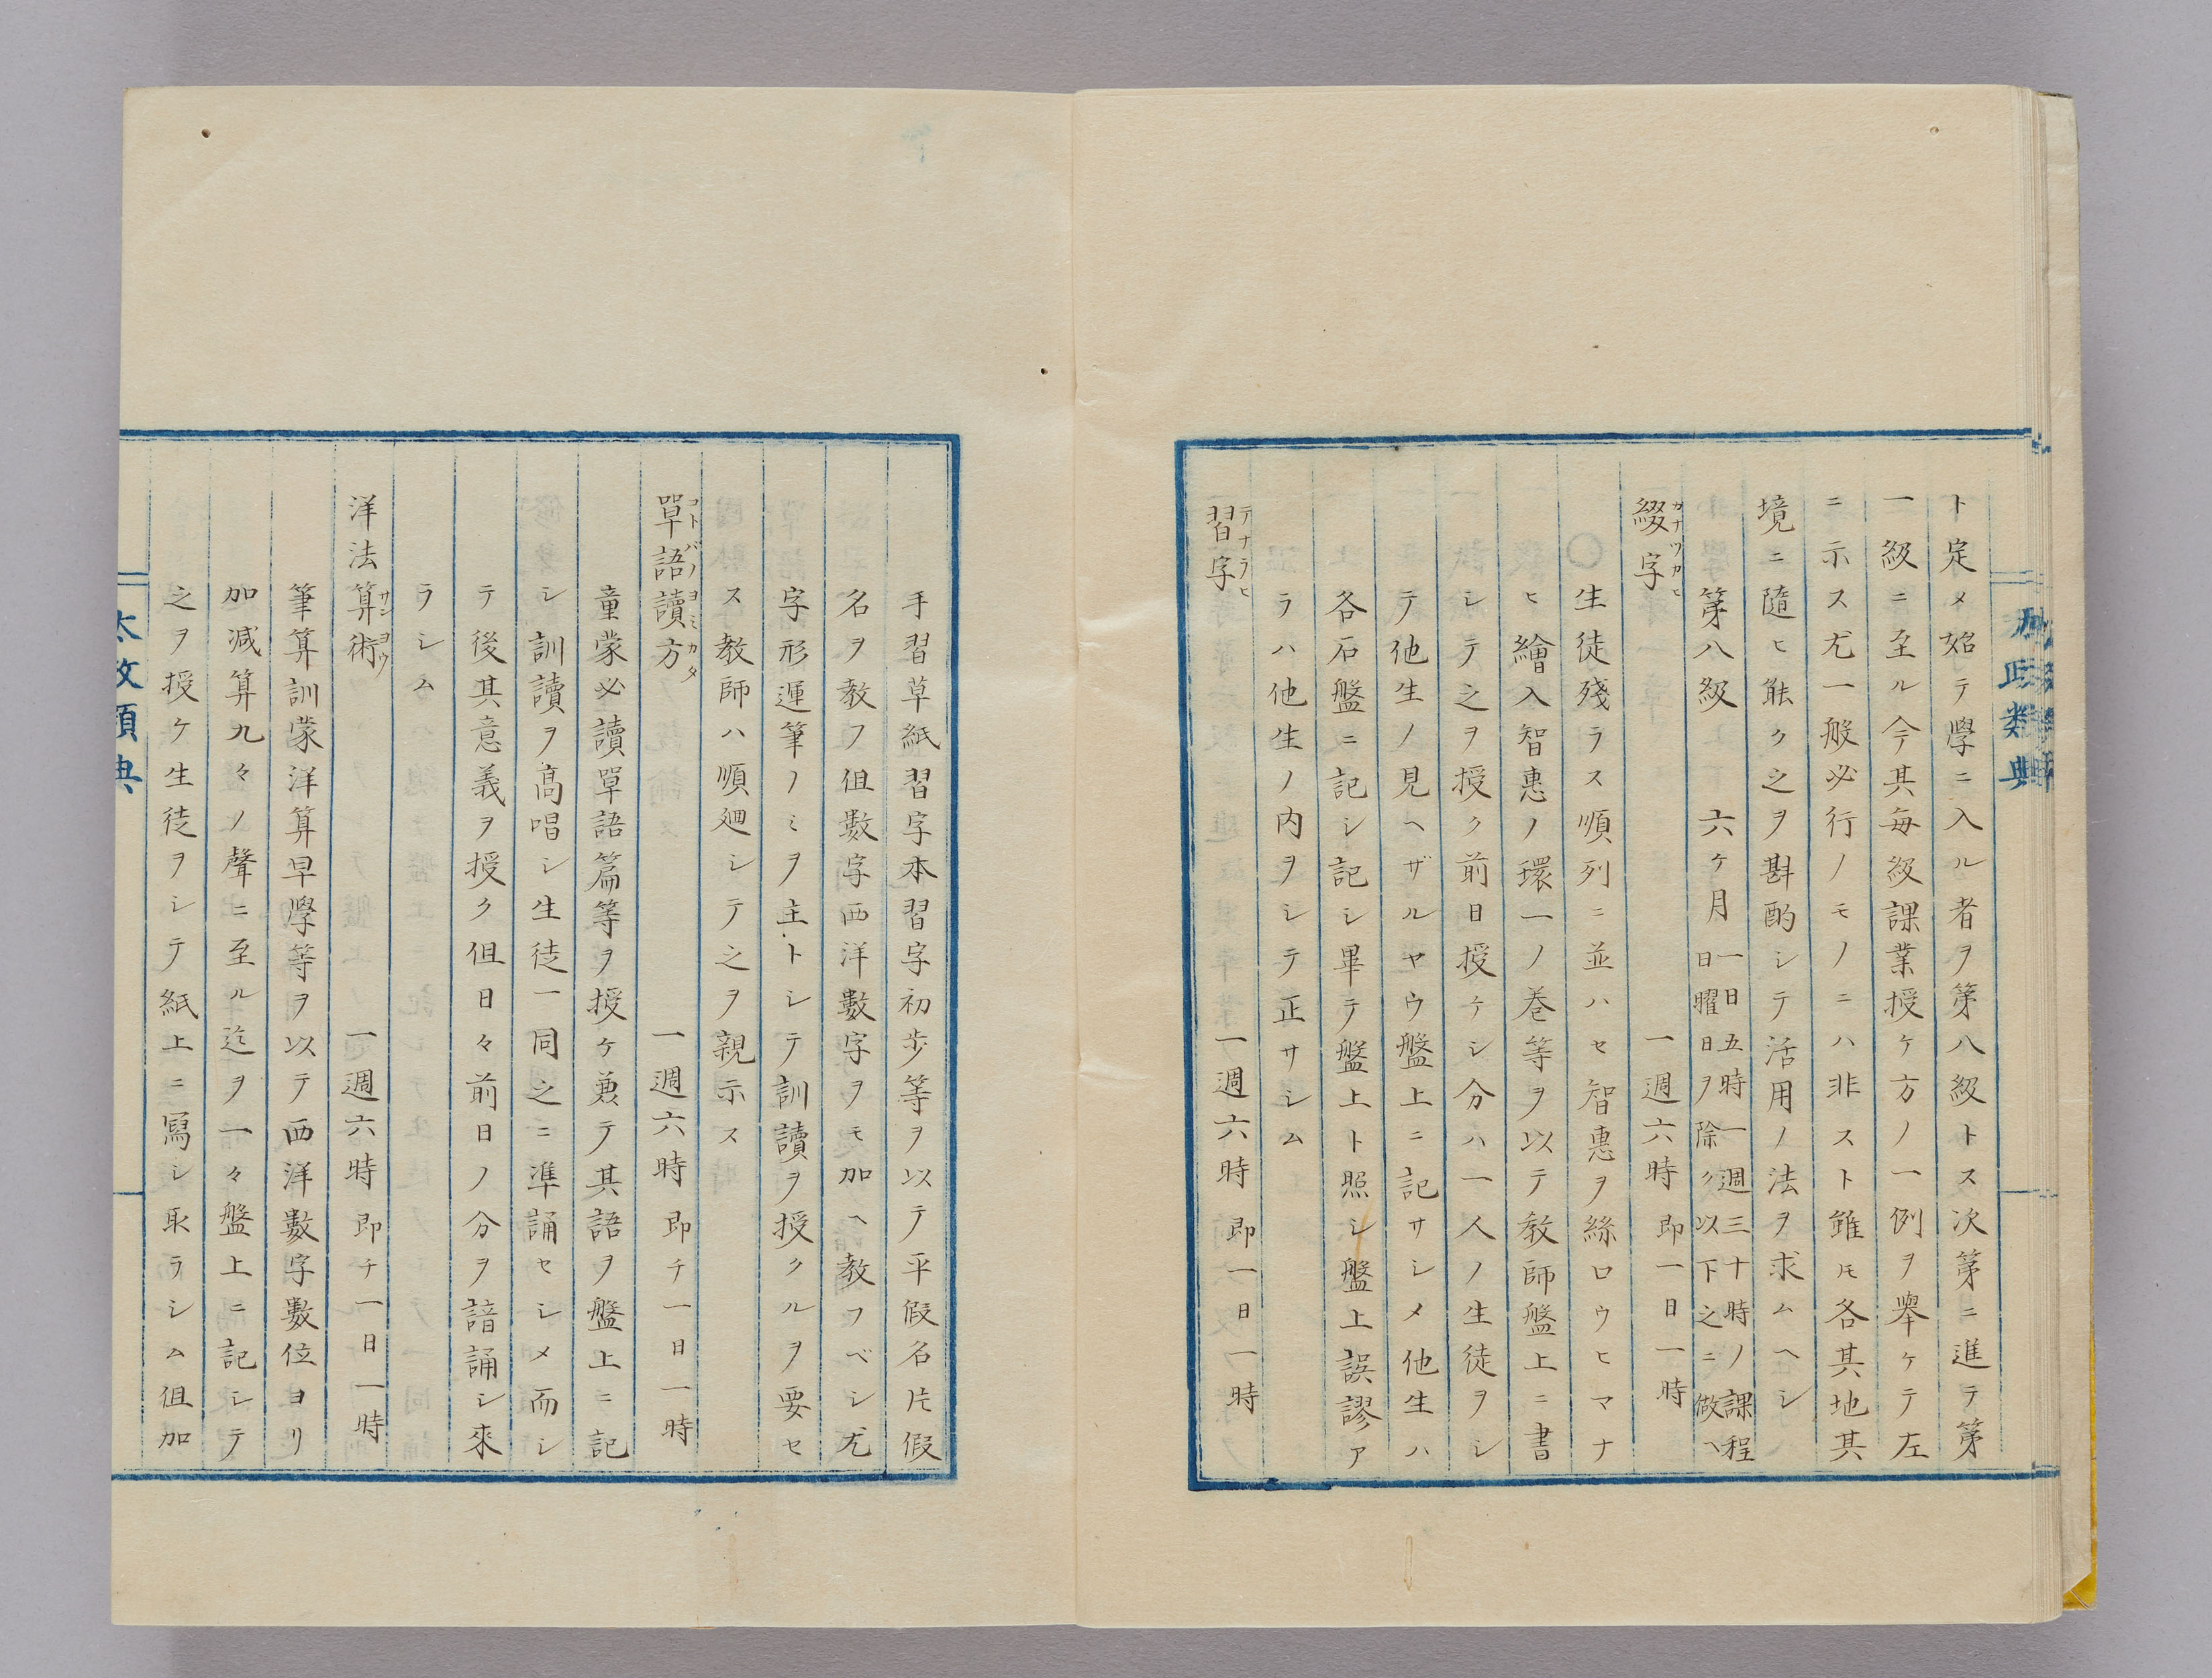 ト定メ始テ學ニ入ル者ヲ第八級トス次第ニ進テ第
一級ニ至ル今其毎級課業授ケ方ノ一例ヲ舉ケテ左
ニ示ス尤一般必行ノモノニハ非スト雖𪜈各其地其
境ニ隨ヒ能ク之ヲ斟酌シテ活用ノ法ヲ求ムヘシ
第八級 六ケ月 一日五時一週三十時ノ課程
日曜日ヲ除ク以下之ニ倣ヘ
綴字 カナツカヒ 一週六時 即一日一時
○生徒殘ラス順列ニ並ハセ智惠ヲ絲口ウヒマナ
ヒ繪入智惠ノ環一ノ巻等ヲ以テ教師盤上ニ書
シテ之ヲ授ク前日授ケシ分ハ一人ノ生徒ヲシ
テ他生ノ見ヘザルヤウ盤上ニ記サシメ他生ハ
各石盤ニ記シ記シ畢テ盤上ト照シ盤上誤謬ア
ラハ他生ノ内ヲシテ正サシム
習字 テナラヒ 一週六時 即一日一時
手習草紙習字本習字初歩等ヲ以テ平假名片假
名ヲ教フ但數字西洋數字ヲモ加ヘ教フベシ尤
字形運筆ノミヲ主トシテ訓讀ヲ授クルヲ要セ
ス教師ハ順廻シテ之ヲ親示ス
單語讀方 コトバノヨミカタ 一週六時 即チ一日一時
童蒙必讀單語篇等ヲ授ケ兼テ其語ヲ盤上ニ記
シ訓讀ヲ高唱シ生徒一同之ニ準誦セシメ而シ
テ後其意義ヲ授ク但日々前日ノ分ヲ諳誦シ來
ラシム
洋法算術 サンヨウ 一週六時 即チ一日一時
筆算訓蒙洋算早學等ヲ以テ西洋數字數位ヨリ
加減算九々ノ聲ニ至ル迄ヲ一々盤上ニ記シテ
之ヲ授ケ生徒ヲシテ紙上ニ寫シ取ラシム但加
太政類典